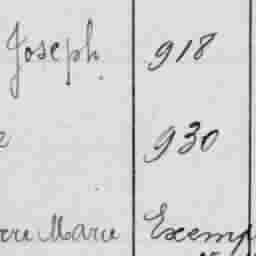 Joseph 918
930
Marie Exemp